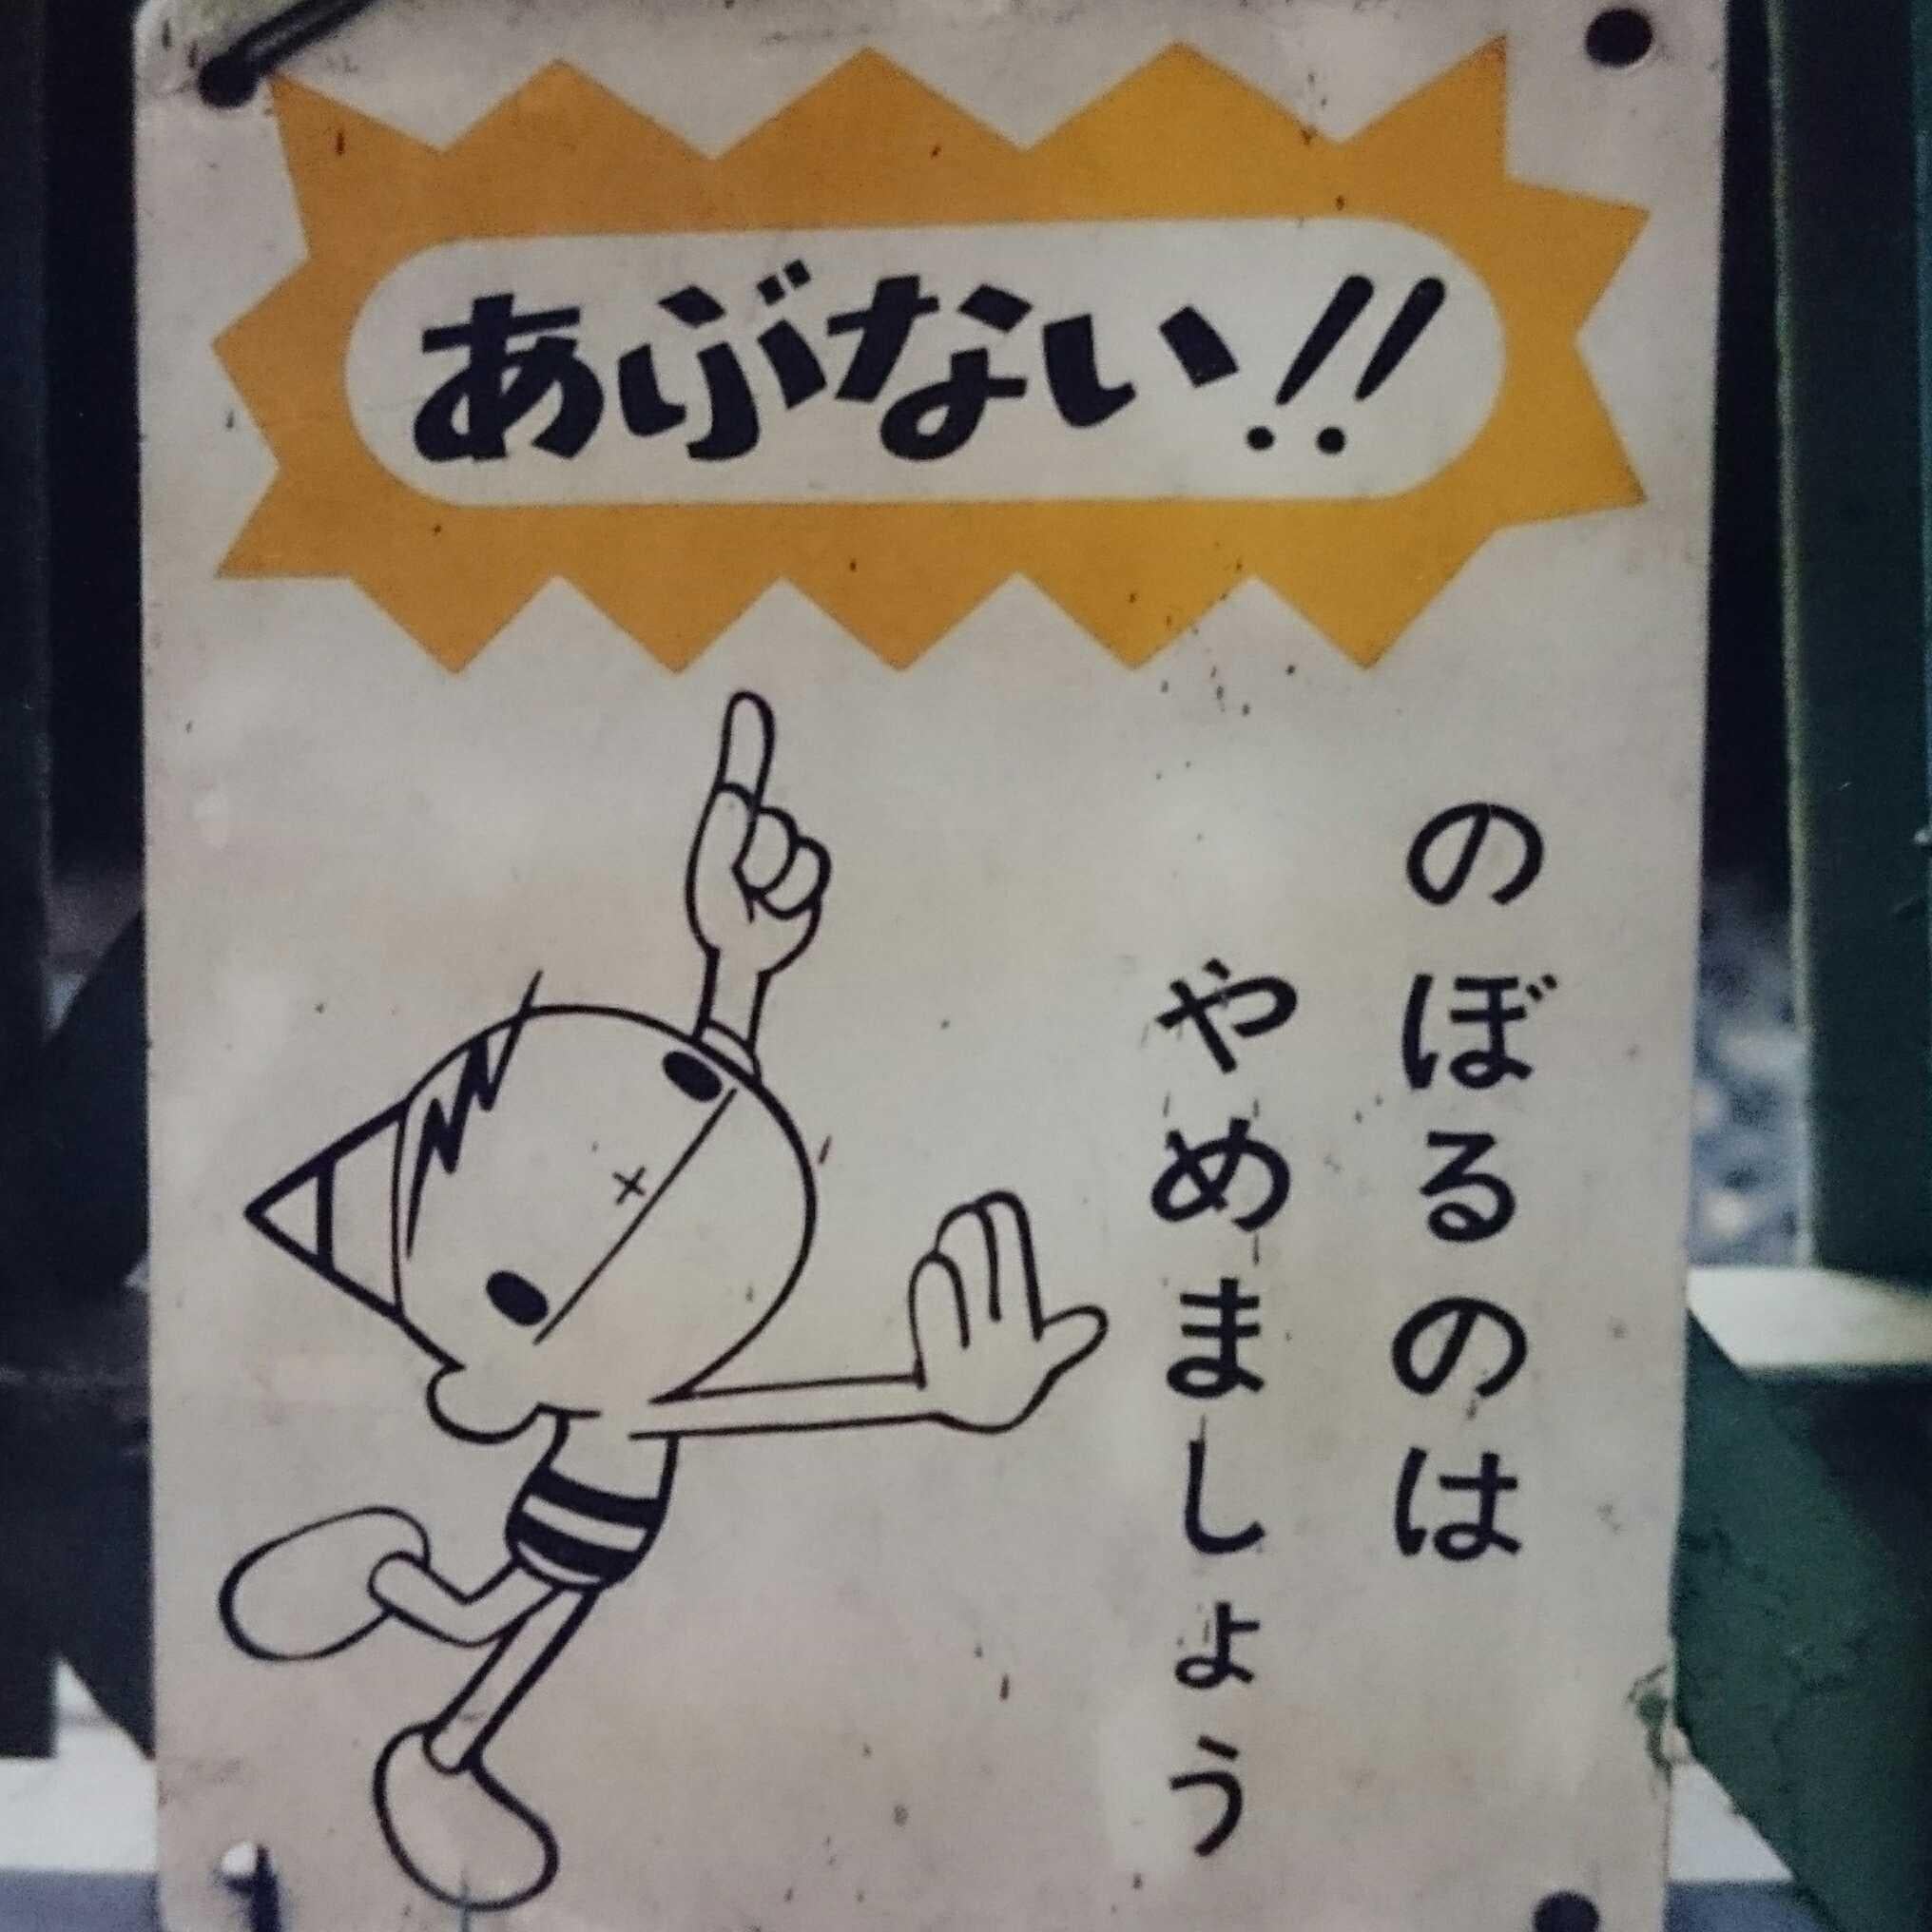 あぶない!!
のぼるのは
やめましょう